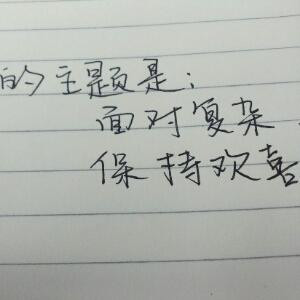 的主题是:
面对复杂
保持欢喜